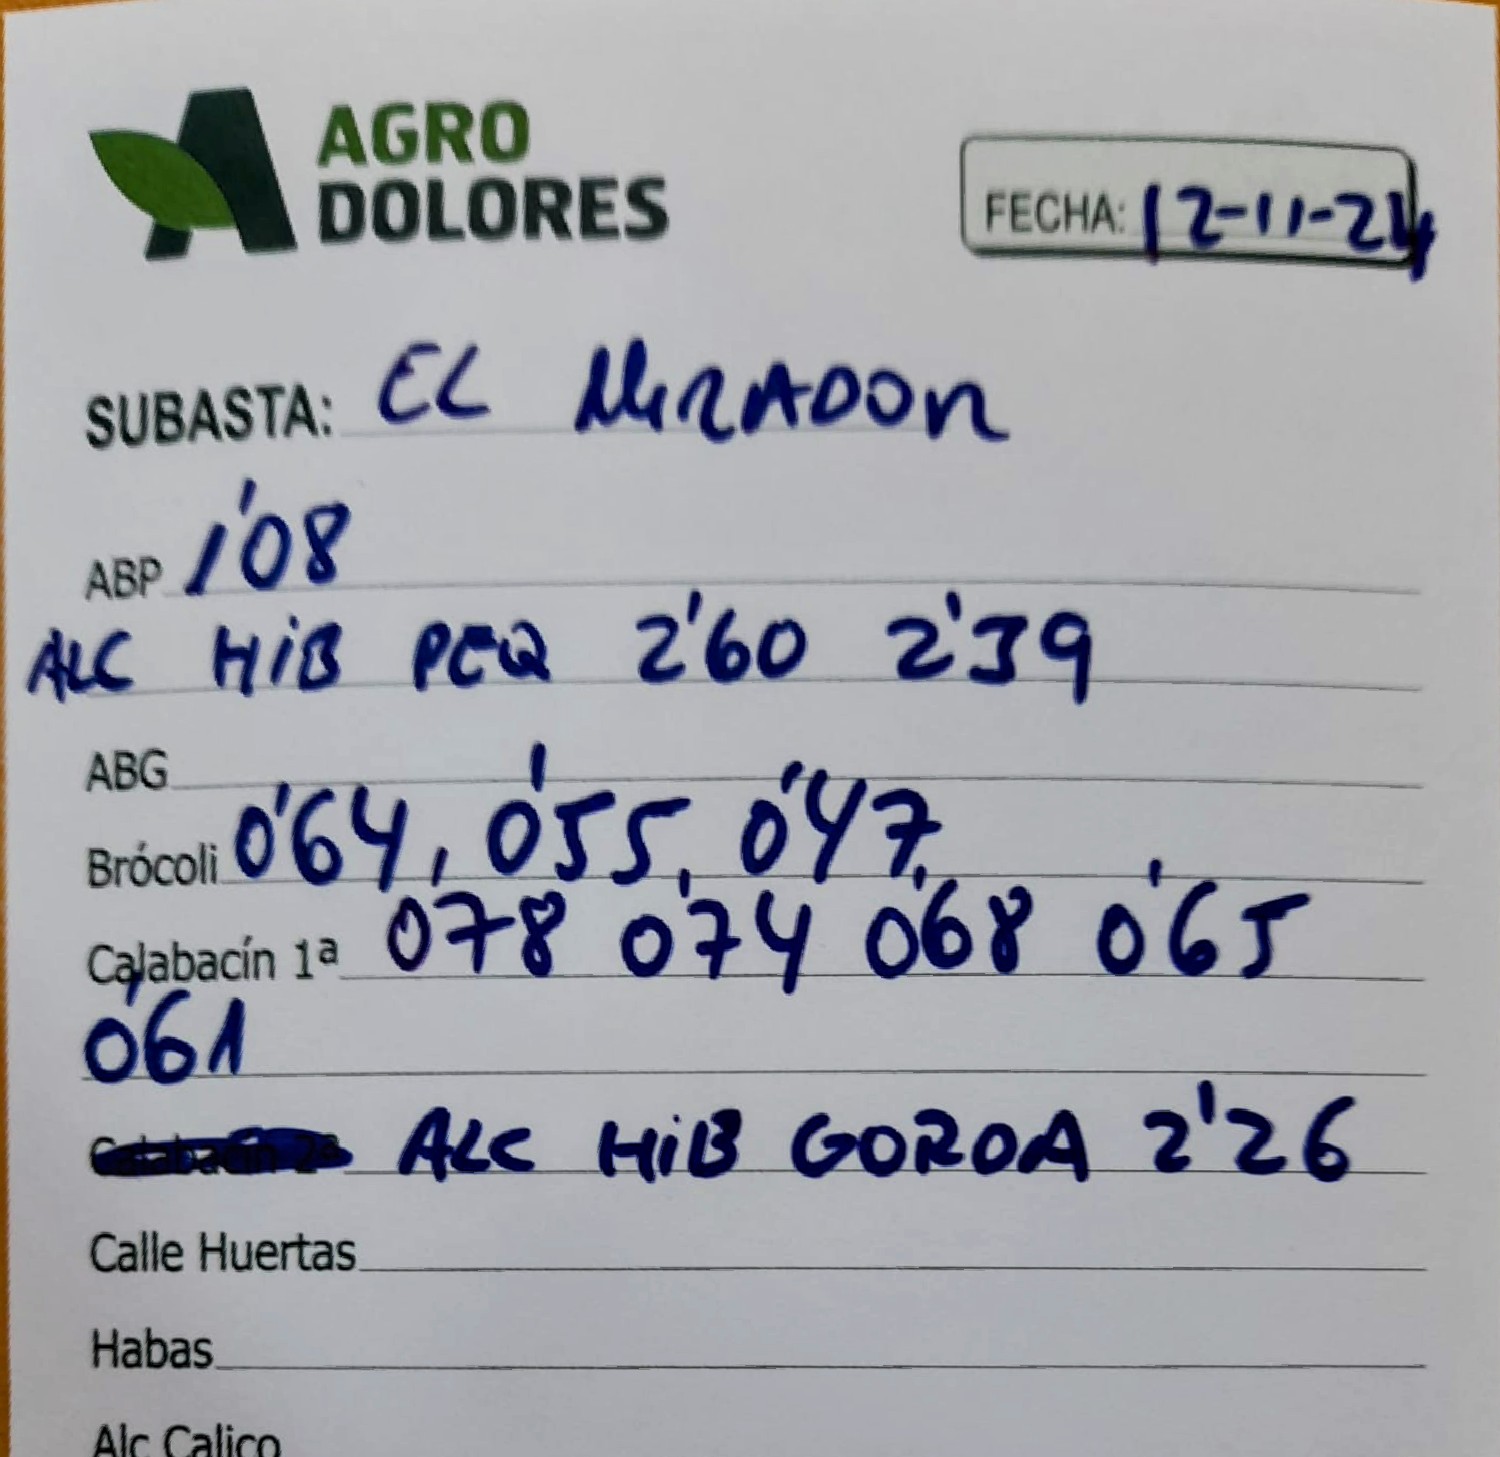 AGRO
DOLORES
FECHA: 12-11-24
SUBASTA: EL MIRADOR
ABP 1'08
ALC HiB PEQ 2'60 2'39
ABG
Brócoli 0'64, 0'55, 0'47,
Calabacín 1ª 0'78 0'74 0'68 0'65
0'61
Calabacín 2ª ALC HiB GORDA 2'26
Calle Huertas
Habas
Alc Calico